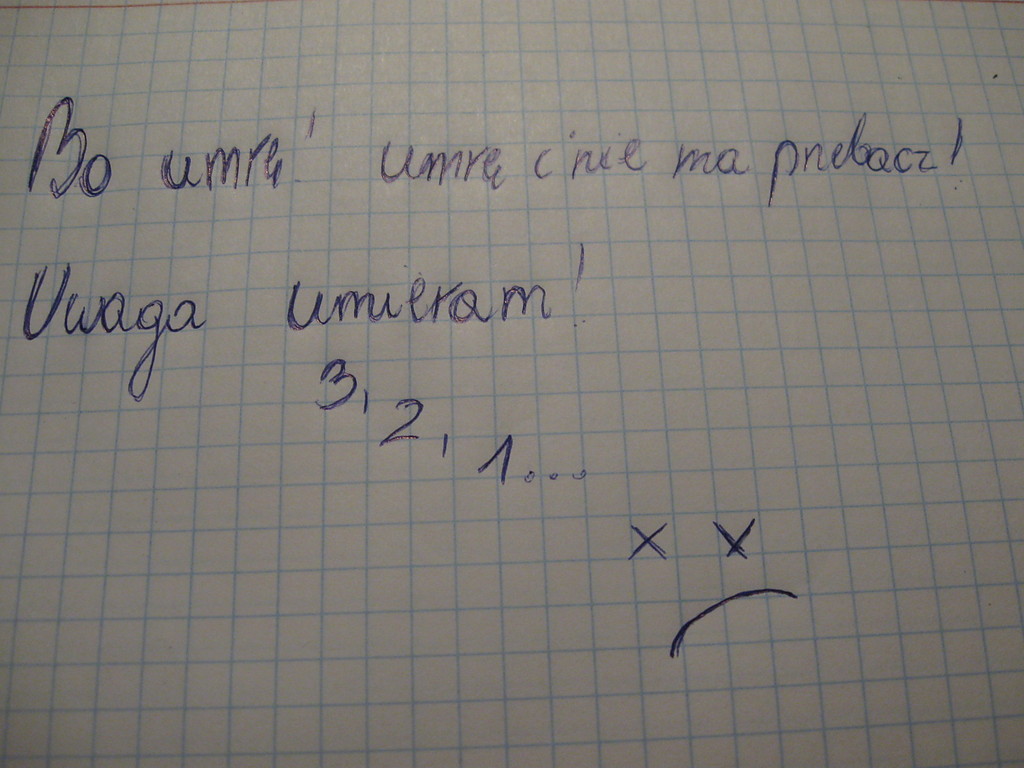 Bo umrę! umrę i nie ma przebacz!
Uwaga umieram!
3,
2,
1...
x x